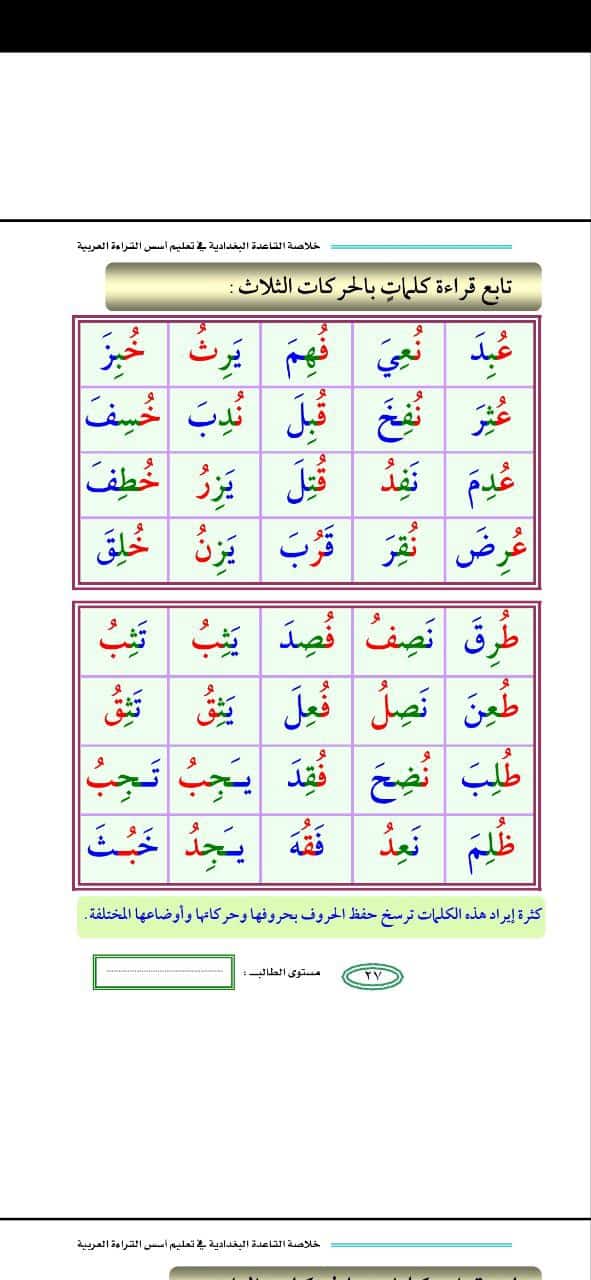 خلاصة القاعدة البغدادية في تعليم أسس القراءة العربية
تابع قراءة كلماتٍ بالحركات الثلاث :
عُبِدَ نُعِيَ فُهِمَ يَرِثُ خُبِزَ
عُثِرَ نُفِخَ قُبِلَ نُدِبَ خُسِفَ
عُدِمَ نَفِدُ قُتِلَ يَزِرُ خُطِفَ
عُرِضَ نُقِرَ قَرُبَ يَزِنُ خُلِقَ
طُرِقَ نَصِفُ فُصِدَ يَثِبُ تَثِبُ
طُعِنَ نَصِلُ فُعِلَ يَثِقُ تَثِقُ
طُلِبَ نُضِحَ فُقِدَ يَـجِبُ تَـجِبُ
ظُلِمَ نَعِدُ فَقُهَ يَـجِدُ خَبُـثَ
كثرة إيراد هذه الكلمات ترسخ حفظ الحروف بحروفها وحركاتها وأوضاعها المختلفة.
٢٧ مستوى الطالبـــ :
خلاصة القاعدة البغدادية في تعليم أسس القراءة العربية